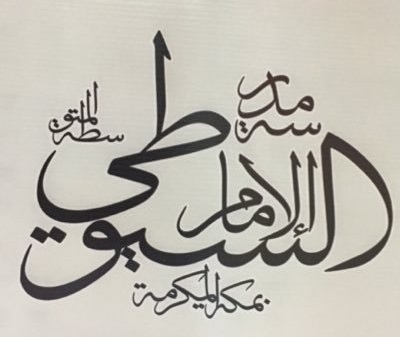 مدرسة
الإمام
السيوطي
المتوسطة
بمكة المكرمة